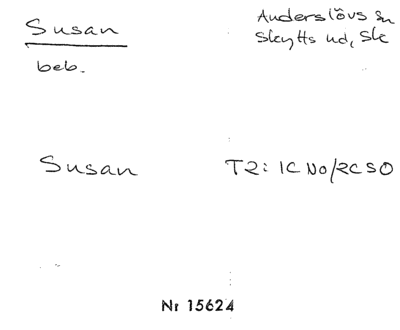 Susan
Anderslövs sn
Skytts hd, Sk
beb.
Susan
T2: 1C NO/2C SO
Nr 15624